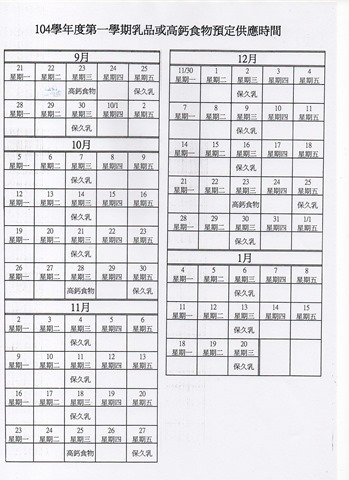 104學年度第一學期乳品或高鈣食物預定供應時間
9月
21 22 23 24 25
星期一 星期二 星期三 星期四 星期五
高鈣食物 保久乳
28 29 30 10/1 2
星期一 星期二 星期三 星期四 星期五
保久乳
10月
5 6 7 8 9
星期一 星期二 星期三 星期四 星期五
保久乳
12 13 14 15 16
星期一 星期二 星期三 星期四 星期五
保久乳
19 20 21 22 23
星期一 星期二 星期三 星期四 星期五
保久乳
26 27 28 29 30
星期一 星期二 星期三 星期四 星期五
高鈣食物 保久乳
11月
2 3 4 5 6
星期一 星期二 星期三 星期四 星期五
保久乳
9 10 11 12 13
星期一 星期二 星期三 星期四 星期五
保久乳
16 17 18 19 20
星期一 星期二 星期三 星期四 星期五
保久乳
23 24 25 26 27
星期一 星期二 星期三 星期四 星期五
高鈣食物 保久乳
12月
11/30 1 2 3 4
星期一 星期二 星期三 星期四 星期五
保久乳
7 8 9 10 11
星期一 星期二 星期三 星期四 星期五
保久乳
14 15 16 17 18
星期一 星期二 星期三 星期四 星期五
保久乳
21 22 23 24 25
星期一 星期二 星期三 星期四 星期五
高鈣食物 保久乳
28 29 30 31 1/1
星期一 星期二 星期三 星期四 星期五
保久乳
1月
4 5 6 7 8
星期一 星期二 星期三 星期四 星期五
保久乳
11 12 13 14 15
星期一 星期二 星期三 星期四 星期五
保久乳
18 19 20
星期一 星期二 星期三
保久乳